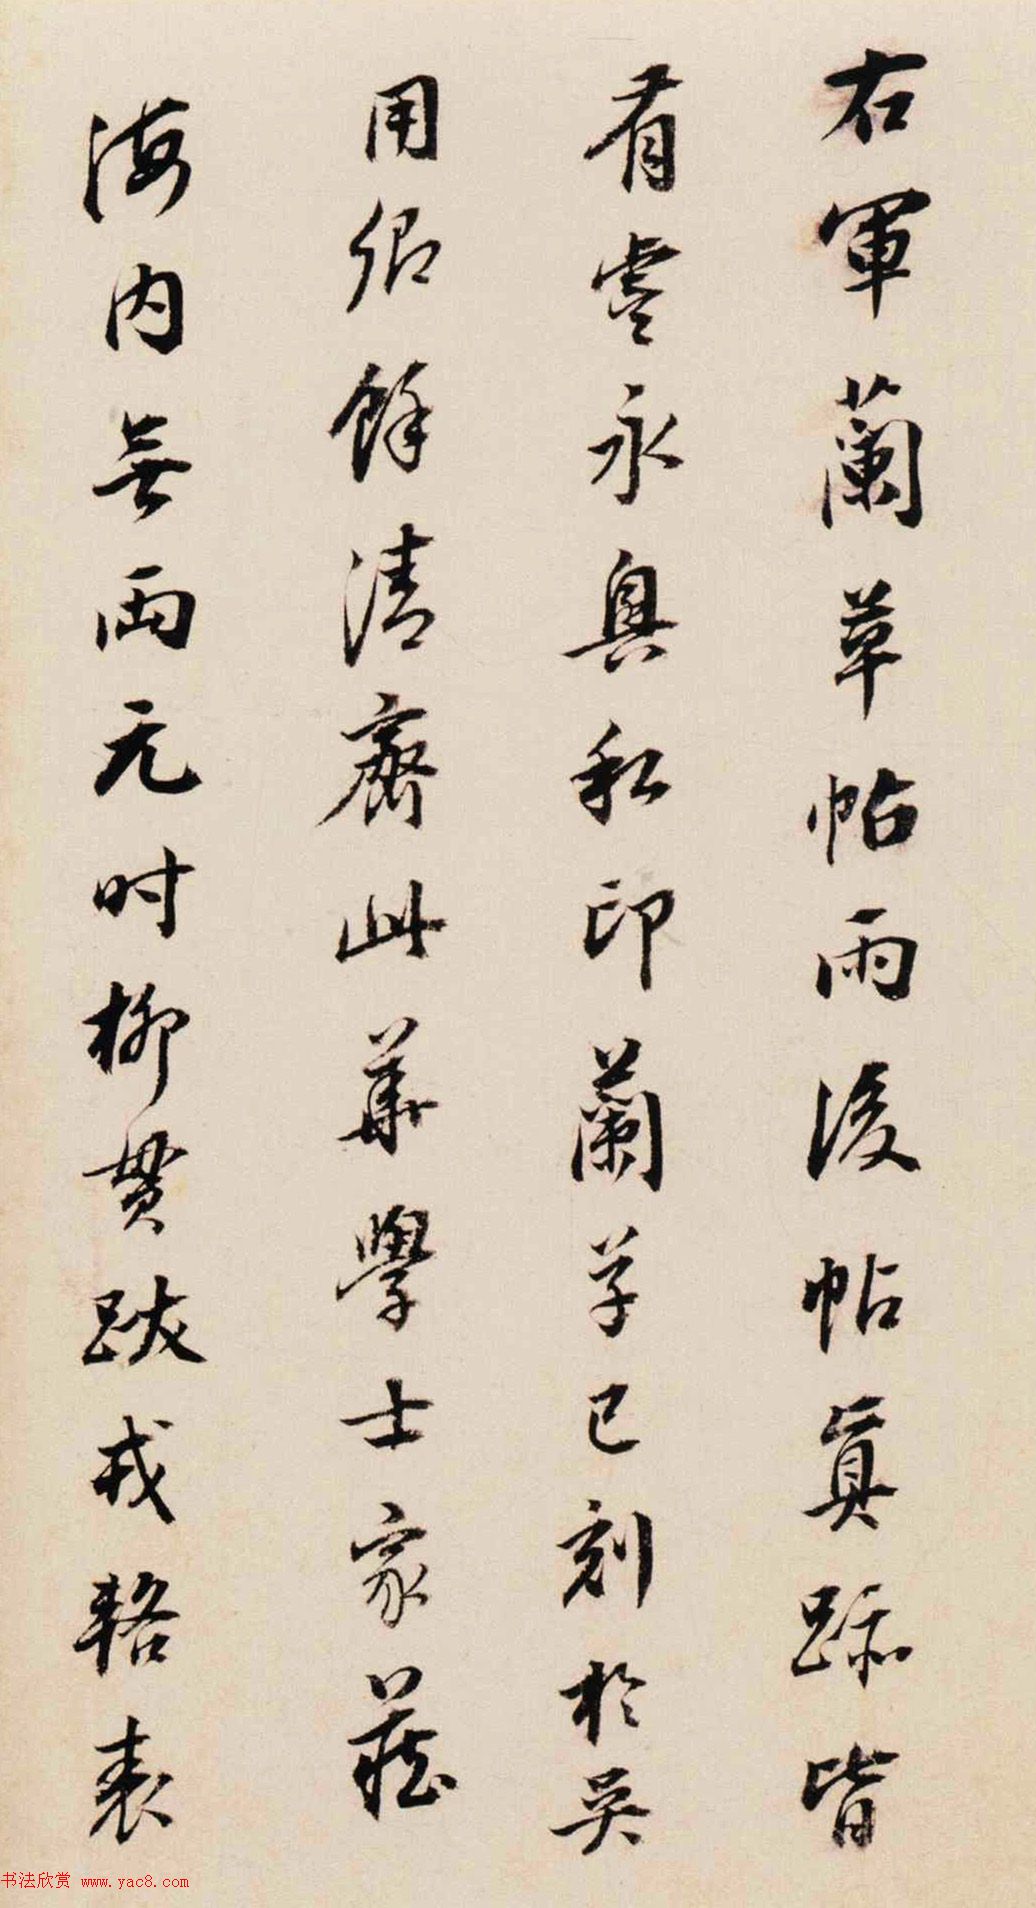 右軍蘭草帖雨後帖真跡皆
有虞永興私印蘭草已刻於吳
用卿餘清齋此華學士家藏
海内無兩元时柳貫跋戎輅表
书法欣赏 www.yac8.com